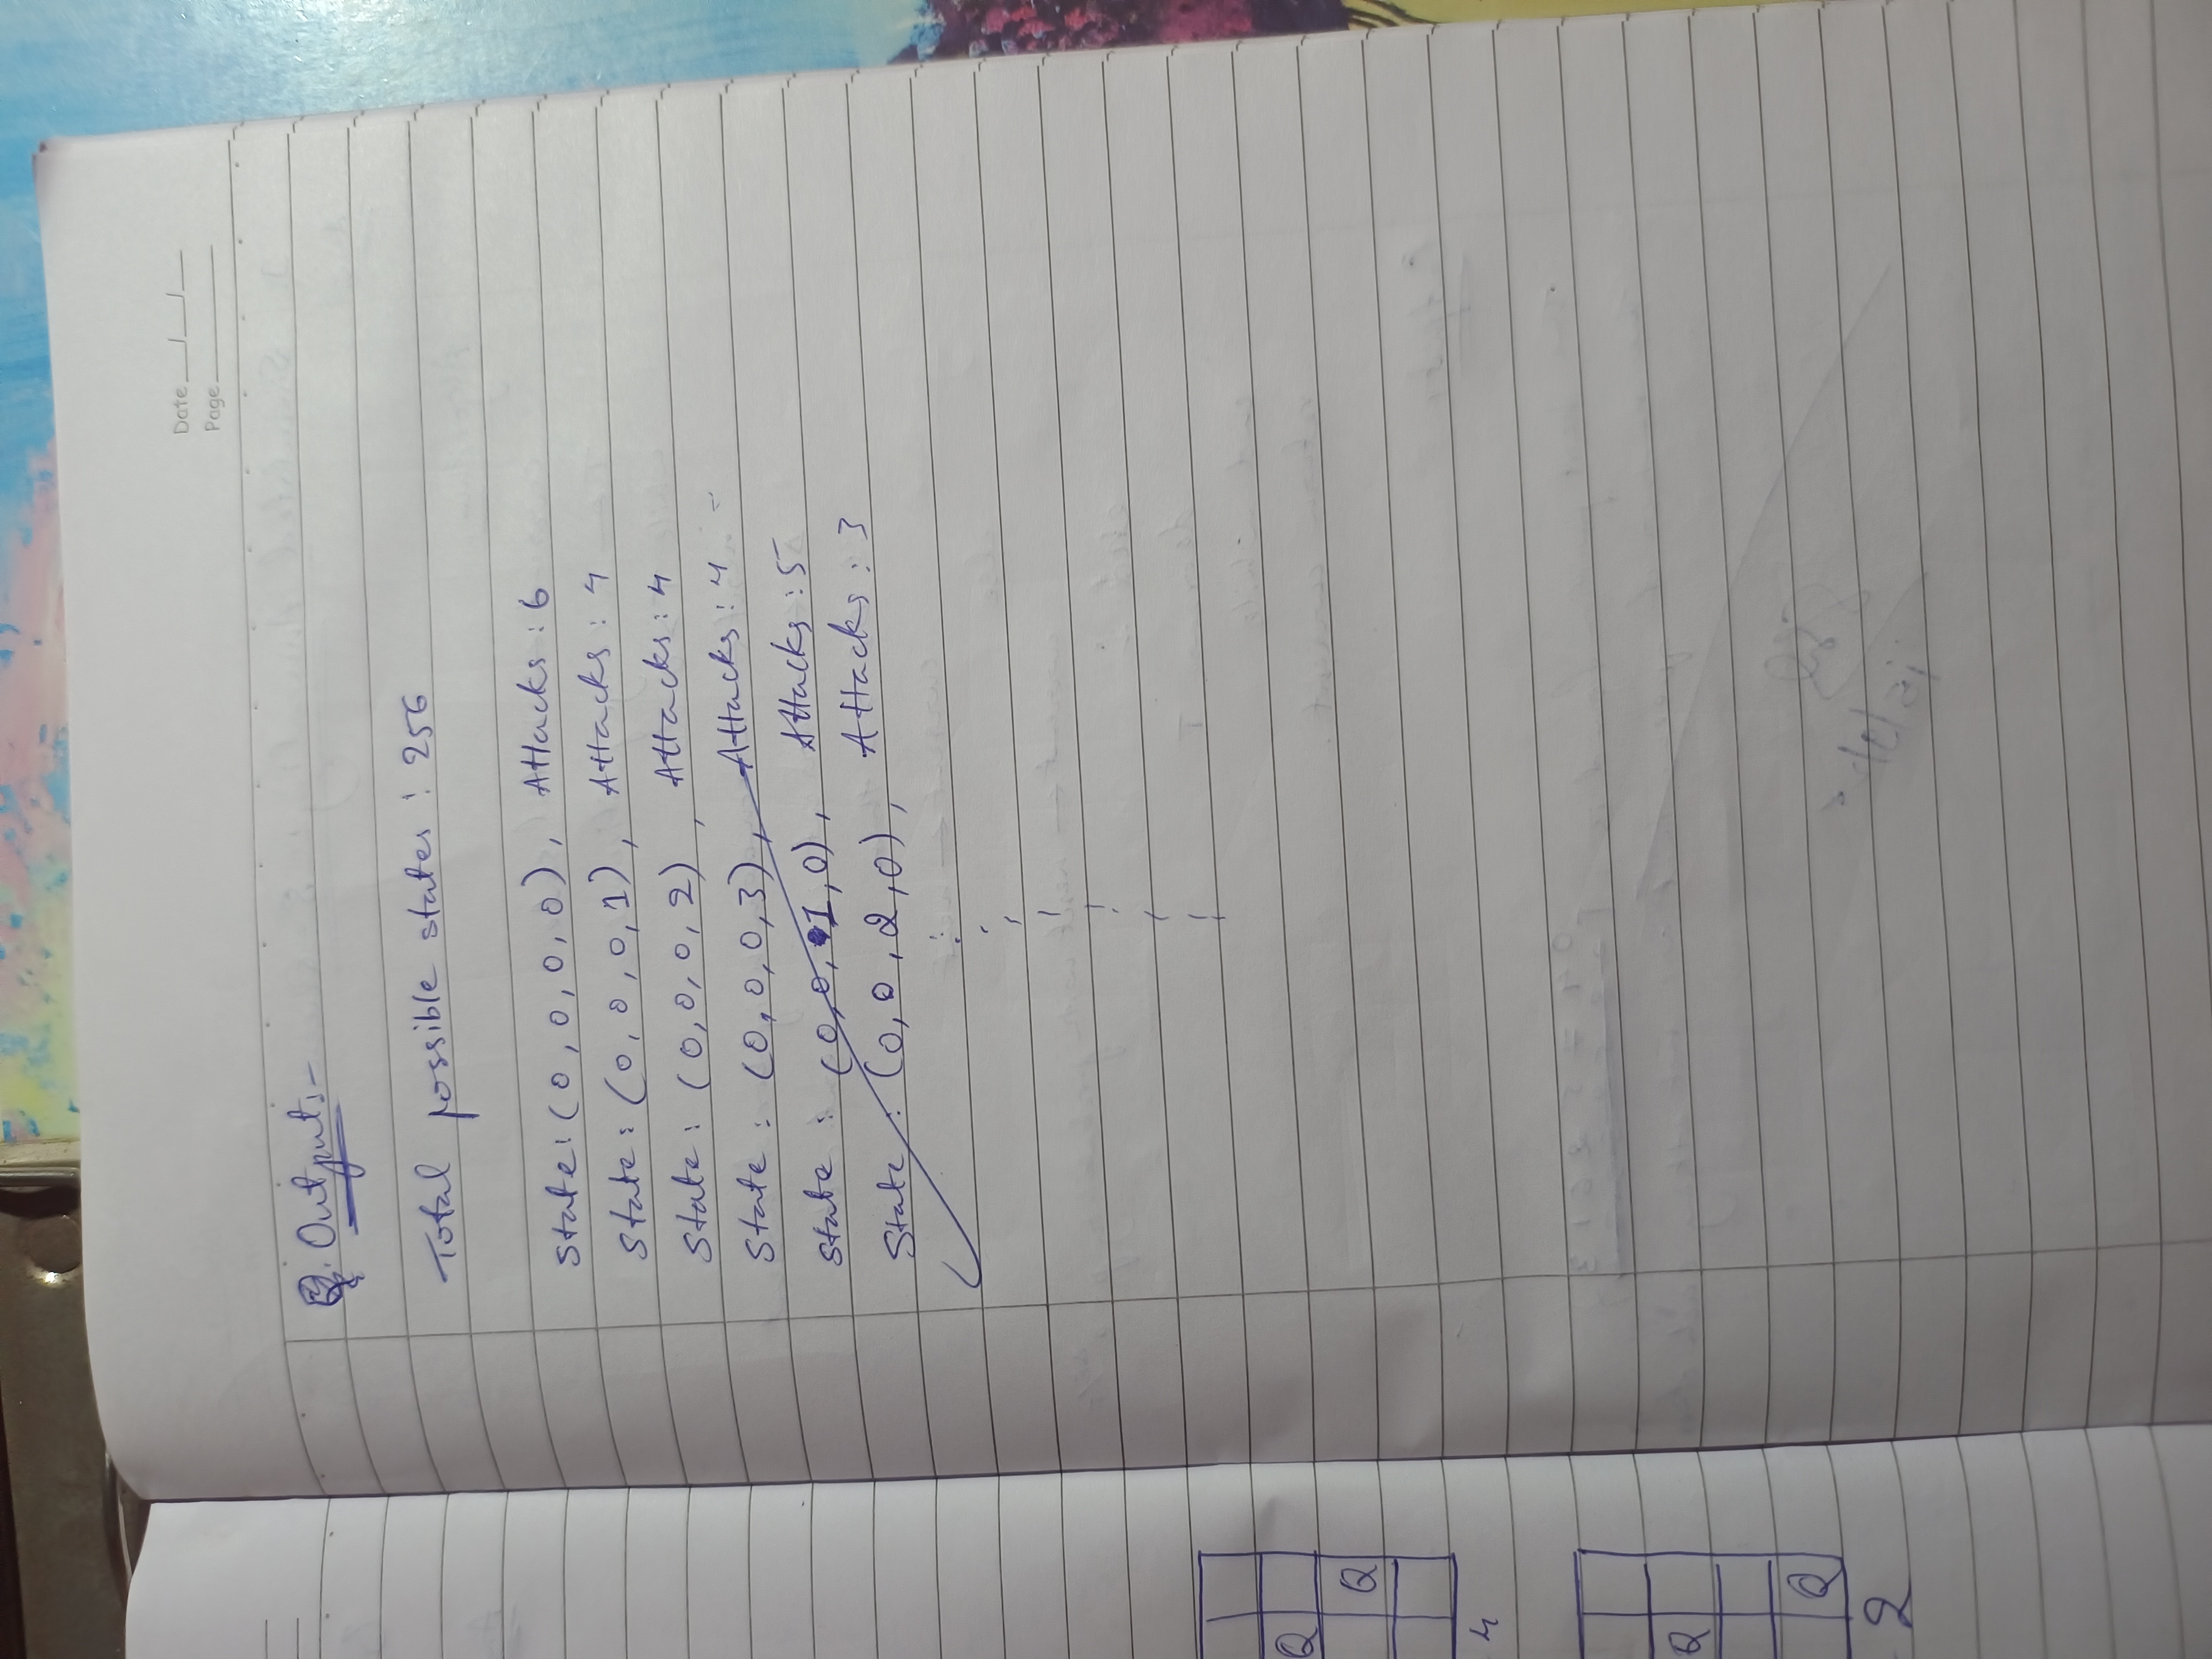 Date
Page
Q. Output:-
Total possible states : 256
State: (0, 0, 0, 0), Attacks : 6
State : (0, 0, 0, 1), Attacks : 4
State : (0, 0, 0, 2), Attacks : 4
State : (0, 0, 0, 3), Attacks : 4
State : (0, 0, 1, 0), Attacks : 5
State : (0, 0, 2, 0), Attacks : 3
Q
Q
4
Q
Q
2